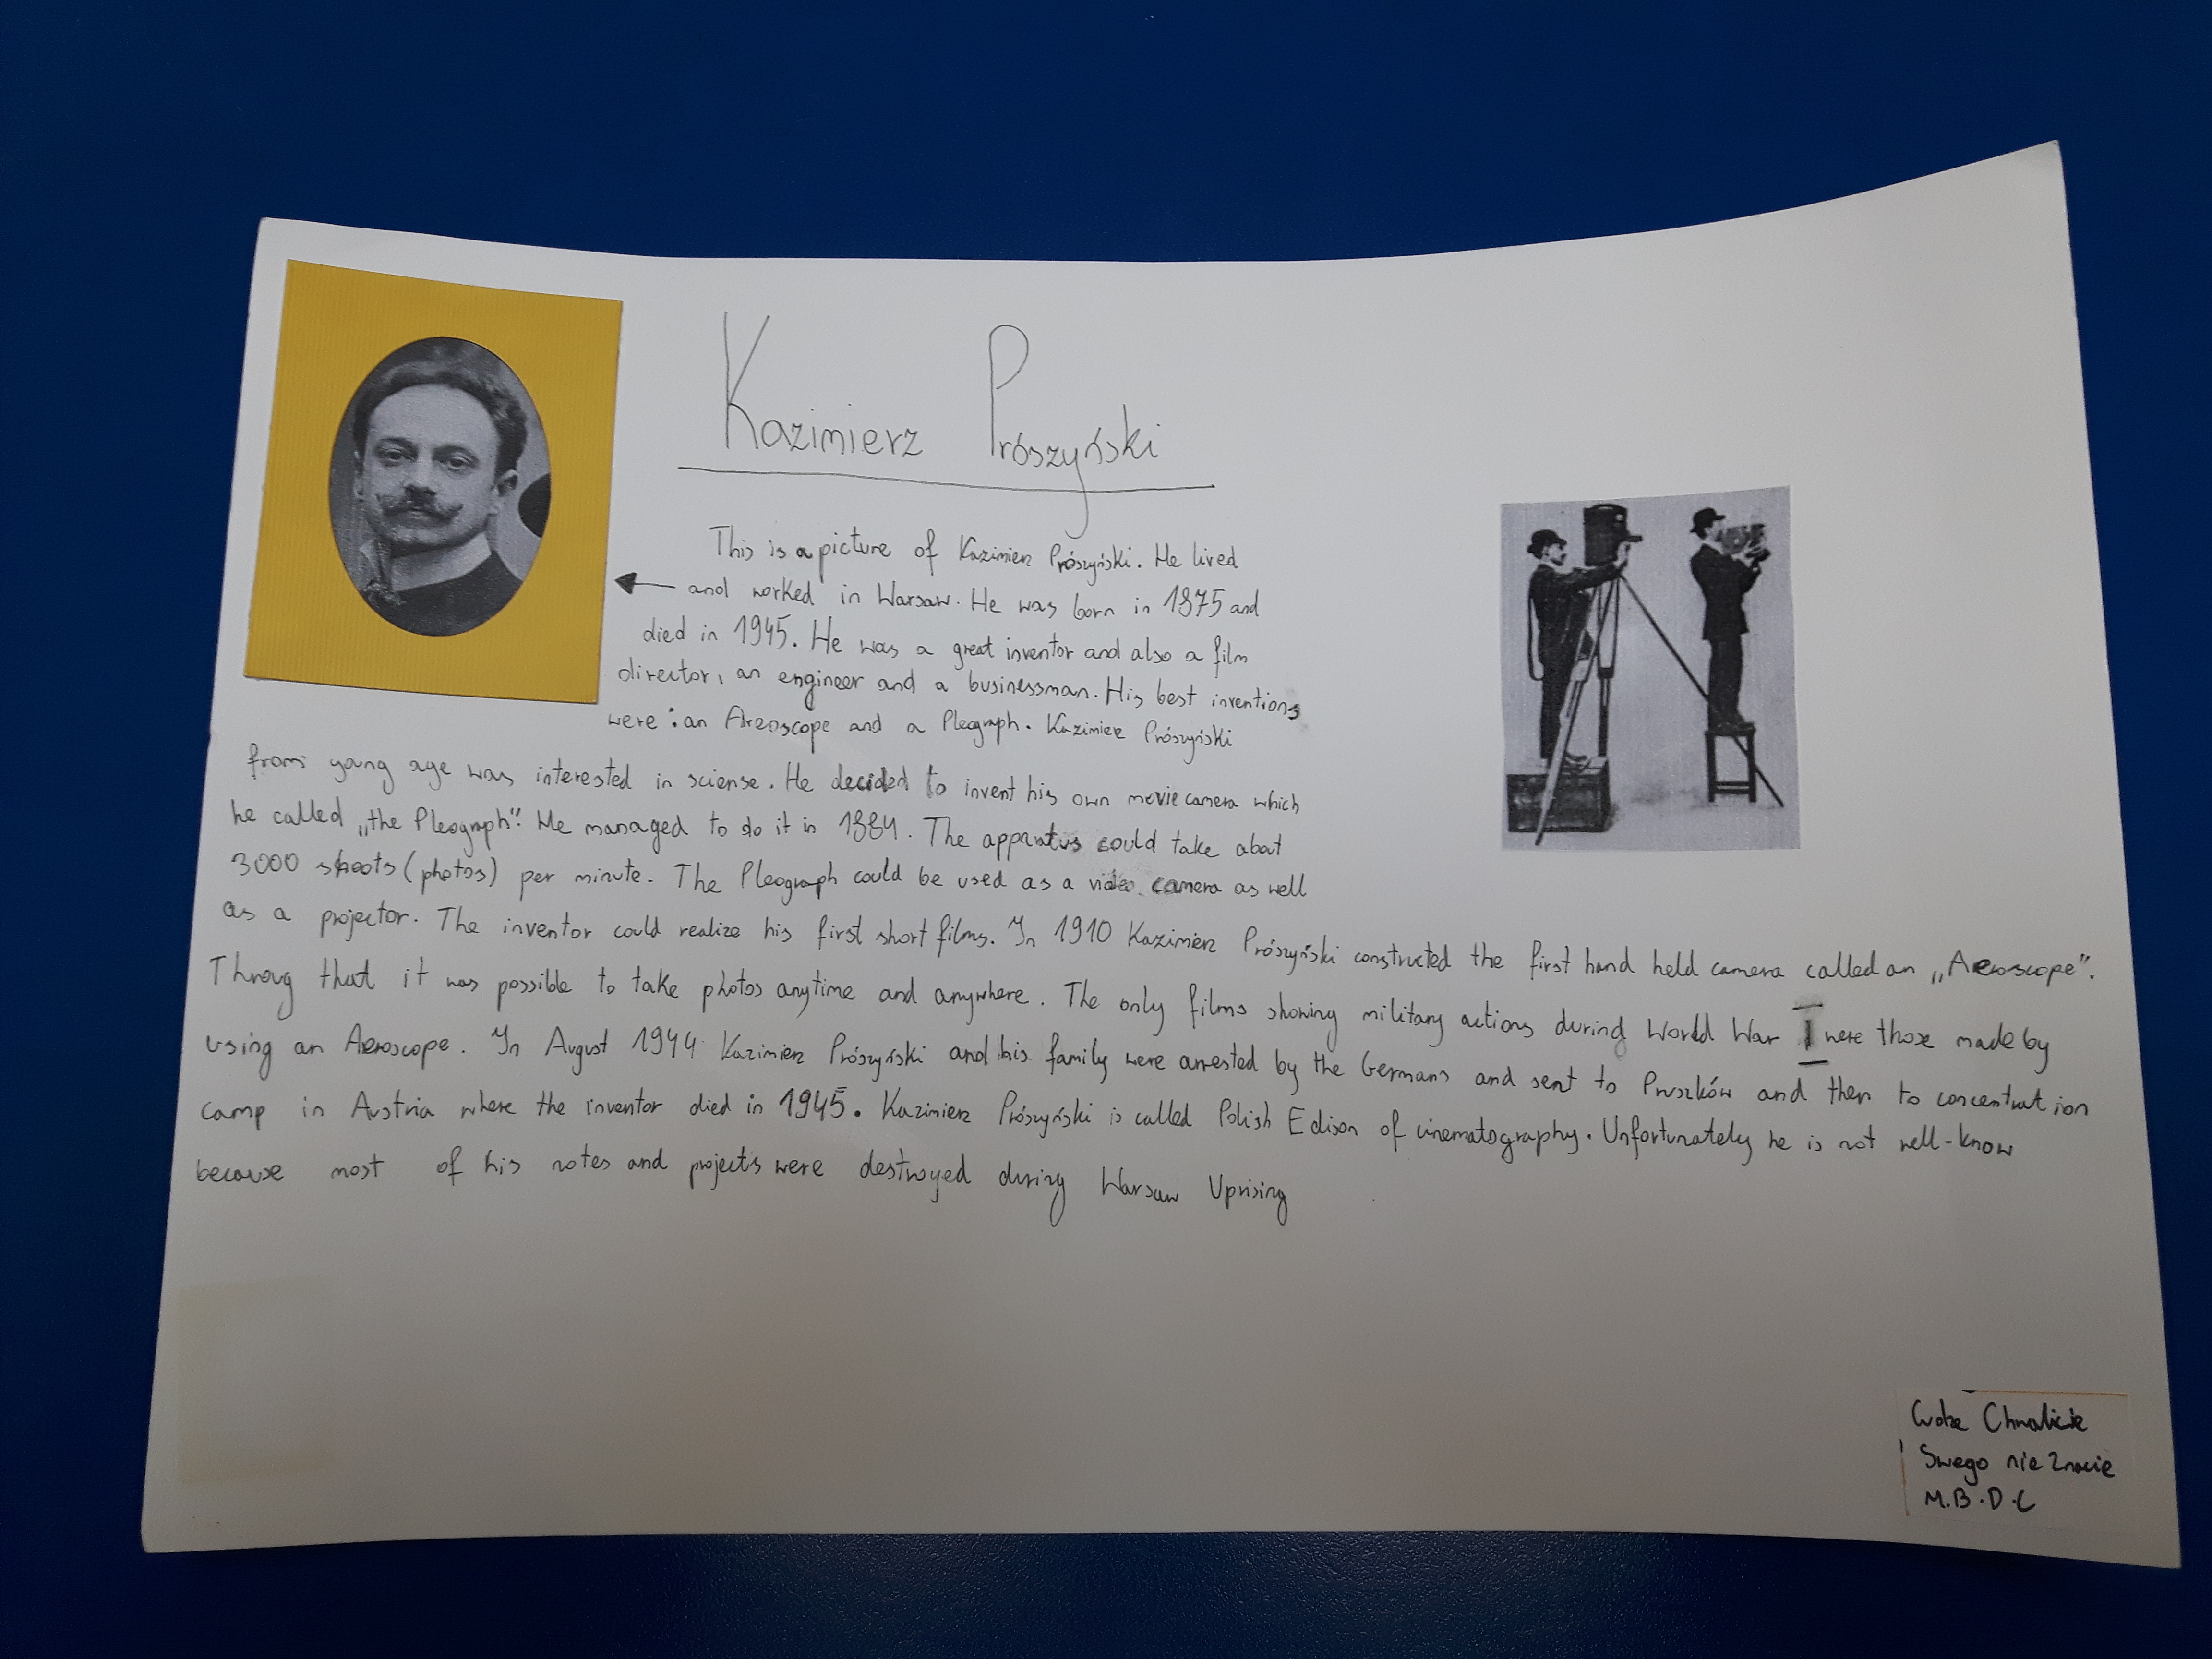 Kazimierz Prószyński
This is a picture of Kazimierz Prószyński. He lived
and worked in Warsaw. He was born in 1875 and
died in 1945. He was a great inventor and also a film
director, an engineer and a businessman. His best inventions
were: an Areoscope and a Pleograph. Kazimierz Prószyński
from young age was interested in sciense. He decided to invent his own movie camera which
he called „the Pleograph". He managed to do it in 1884. The apparatus could take about
3000 shoots (photos) per minute. The Pleograph could be used as a video camera as well
as a projector. The inventor could realize his first short films. In 1910 Kazimierz Prószyński constructed the first hand held camera called an „Aeroscope".
Throug that it was possible to take photos anytime and anywhere. The only films showing military actions during World War I were those made by
using an Aeroscope. In August 1944 Kazimierz Prószyński and his family were arrested by the Germans and sent to Pruszków and then to concentration
camp in Austria where the inventor died in 1945. Kazimierz Prószyński is called Polish Edison of cinematography. Unfortunately he is not well-know
because most of his notes and projects were destroyed during Warsaw Uprising
Cudze Chwalicie
Swego nie Znacie
M.B.D.C